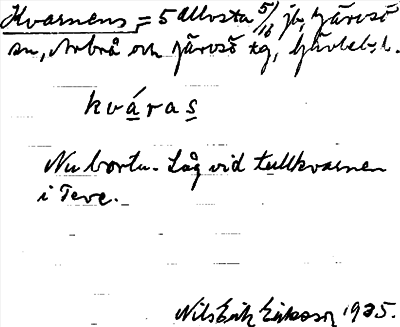 Kvarnens = 5 Allsta 5/16 jb, Järvsö
sn, Arbrå och Järvsö tg, Gävlebs l.
kváras
Nu borta. Låg vid tullkvarnen
i Teve.
Nils Erik Eriksson 1935.